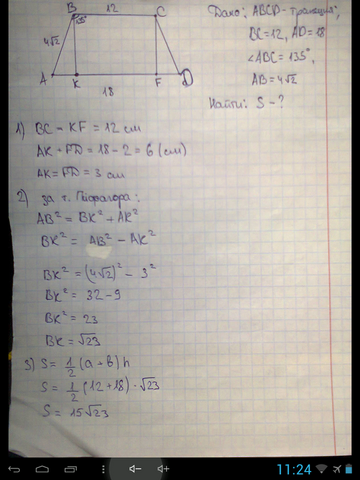 B 12 C
135°
4√2
A K F D
18
Дано: ABCD - трапеция,
BC=12, AD=18
∠ABC = 135°,
AB = 4√2
Найти: S - ?
1) BC = KF = 12 см
AK + FD = 18 - 2 = 6 (см)
AK = FD = 3 см
2) за т. Пифагора:
AB² = BK² + AK²
BK² = AB² - AK²
BK² = (4√2)² - 3²
BK² = 32 - 9
BK² = 23
BK = √23
3) S = 1/2 (a + b) h
S = 1/2 (12 + 18) · √23
S = 15√23
11:24